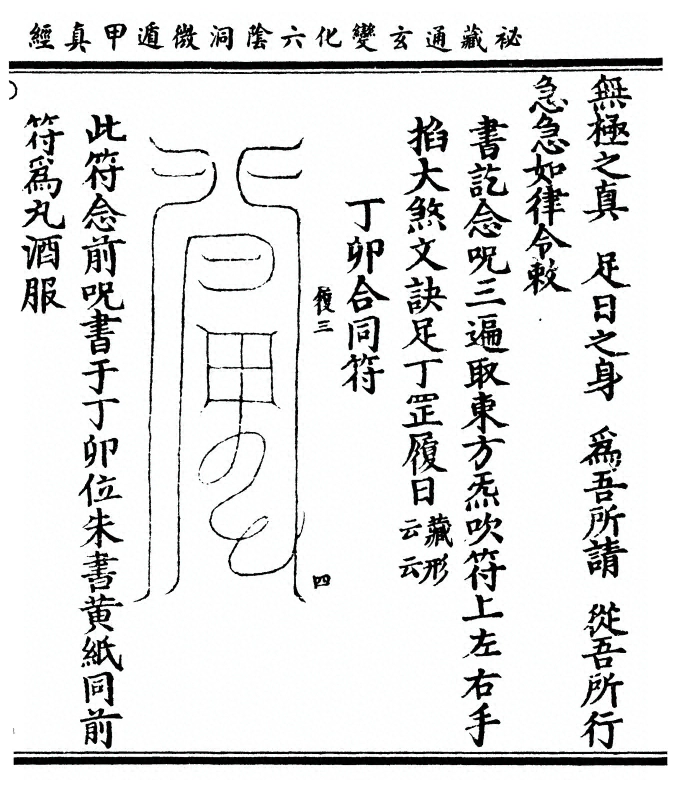 祕藏通玄變化六陰洞微遁甲真經
無極之真　足日之身　爲吾所請　從吾所行
急急如律令敕
書訖念呪三遍取東方炁吹符上左右手
掐大煞文訣足丁罡履日藏形云云
丁卯合同符
履三
四
此符念前呪書于丁卯位朱書黄紙同前
符爲丸酒服